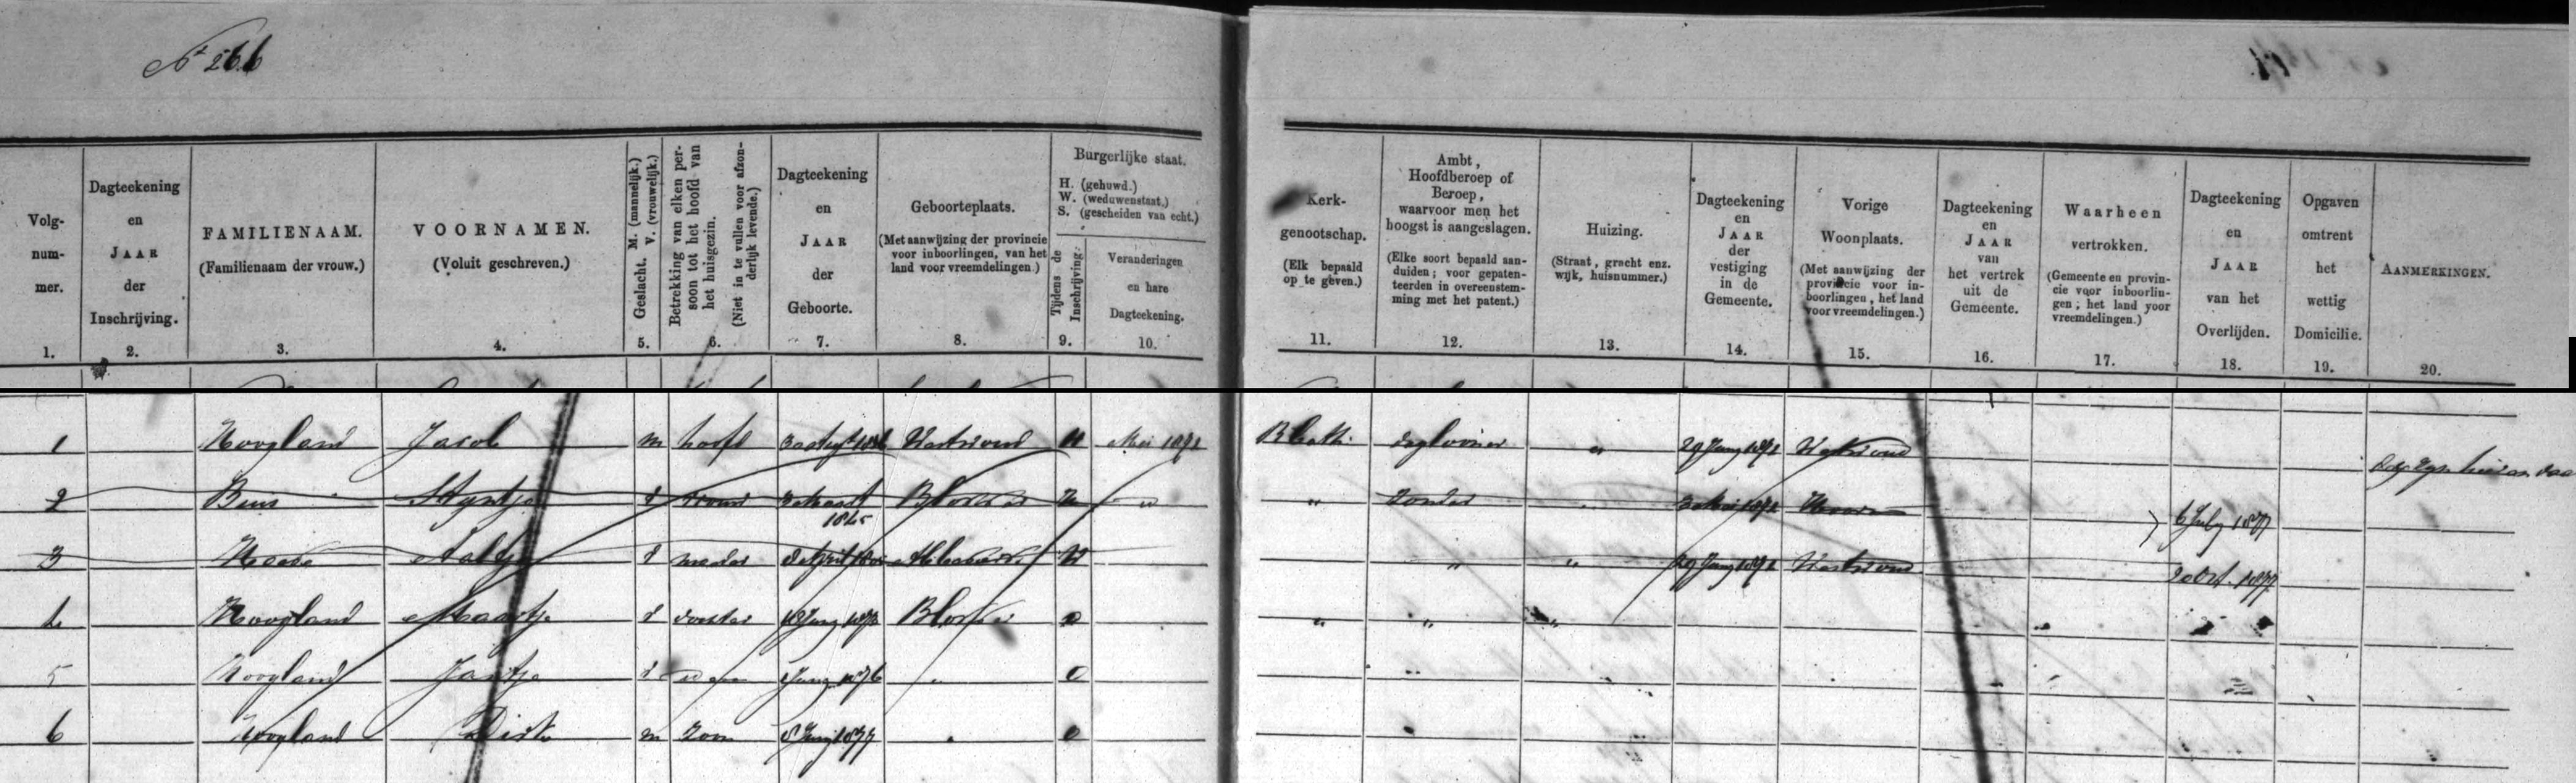 N 266
Volg-
num-
mer.
1.
Dagteekening
en
JAAR
der
Inschrijving.
2.
FAMILIENAAM.
(Familienaam der vrouw.)
3.
VOORNAMEN.
(Voluit geschreven.)
4.
Geslacht. M. (mannelijk.)
V. (vrouwelijk.)
5.
Betrekking van elken per-
soon tot het hoofd van
het huisgezin.
(Niet in te vullen voor afzon-
derlijk levende.)
6.
Dagteekening
en
JAAR
der
Geboorte.
7.
Geboorteplaats.
(Met aanwijzing der provincie
voor inboorlingen, van het
land voor vreemdelingen.)
8.
Burgerlijke staat.
H. (gehuwd.)
W. (weduwenstaat.)
S. (gescheiden van echt.)
Tijdens de
Inschrijving.
9.
Veranderingen
en hare
Dagteekening.
10.
Kerk-
genootschap.
(Elk bepaald
op te geven.)
11.
Ambt,
Hoofdberoep of
Beroep,
waarvoor men het
hoogst is aangeslagen.
(Elke soort bepaald aan-
duiden; voor gepaten-
teerden in overeenstem-
ming met het patent.)
12.
Huizing.
(Straat, gracht enz.
wijk, huisnummer.)
13.
Dagteekening
en
JAAR
der
vestiging
in de
Gemeente.
14.
Vorige
Woonplaats.
(Met aanwijzing der
provincie voor in-
boorlingen, het land
voor vreemdelingen.)
15.
Dagteekening
en
JAAR
van
het vertrek
uit de
Gemeente.
16.
Waarheen
vertrokken.
(Gemeente en provin-
cie voor inboorlin-
gen; het land voor
vreemdelingen.)
17.
Dagteekening
en
JAAR
van het
Overlijden.
18.
Opgaven
omtrent
het
wettig
Domicilie.
19.
AANMERKINGEN.
20.
1 Hoogland Jacob m hoofd Westwoud H Mei 1872 R Cath. daglooner " 29 Juny 1872 Westwoud
2 Beus Stijntje v vrouw 3 Maart 1845 Blokker H " " zonder 3 Mei 1872 Hoorn 6 July 1877
3 Aaltje v moeder W " " 29 Juny 1872 Westwoud 2 Oct. 1877
4 Hoogland Maartje v dochter Blokker O " " "
5 Hoogland Jantje v 1876 " O "
6 Hoogland Dirk m zoon 8 Juny 1877 " O "